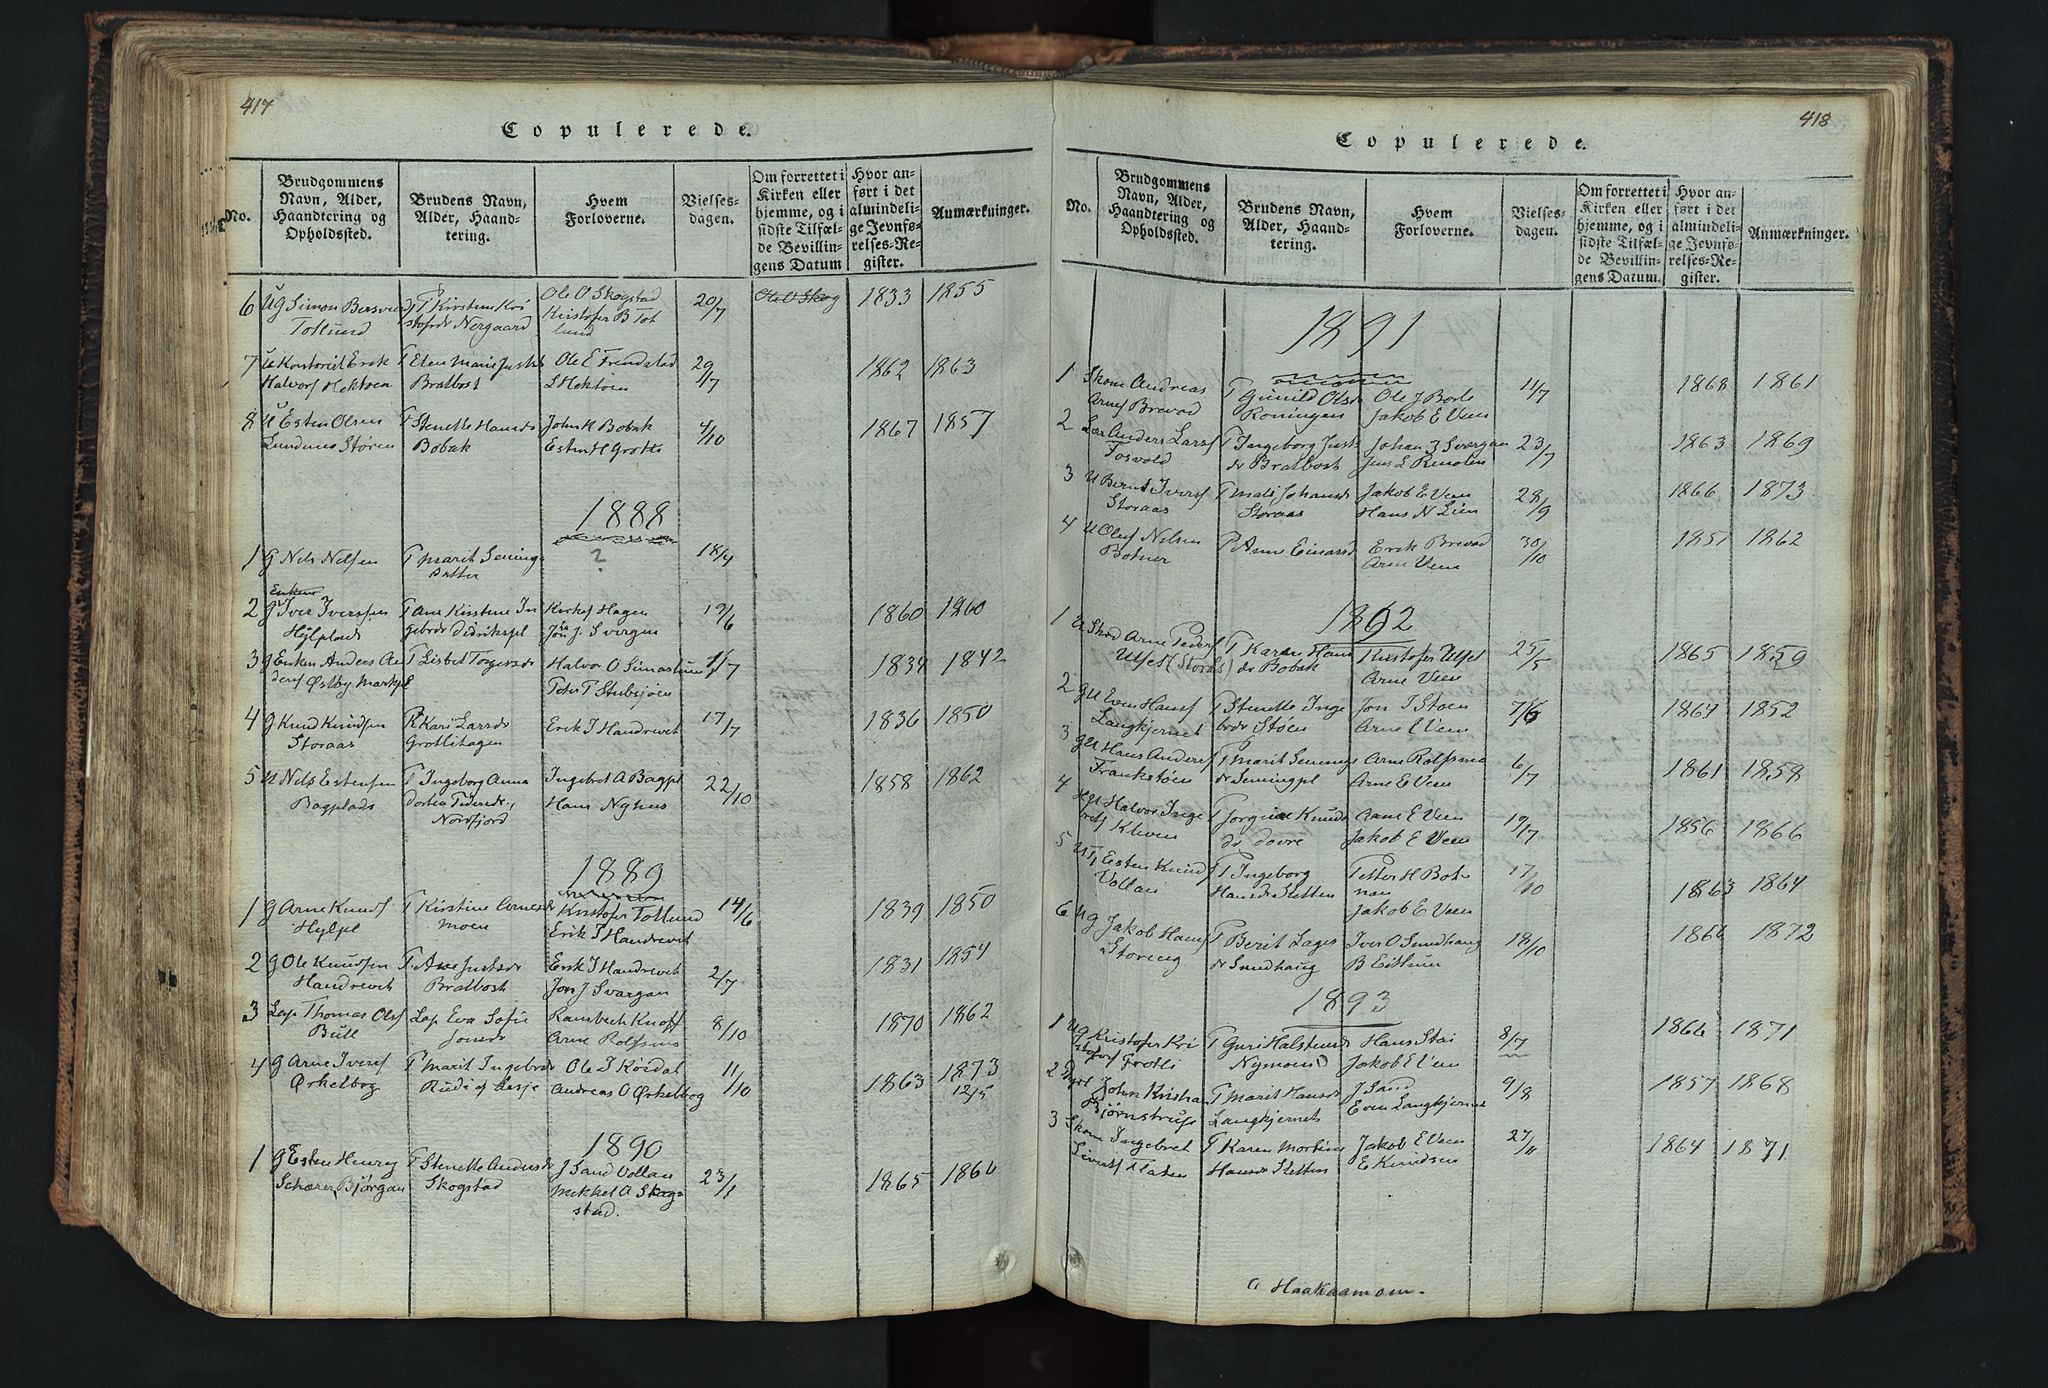 417
Copulerede.
No.
Brudgommens Navn, Alder, Haandtering og Opholdssted.
Brudens Navn, Alder, Haandtering.
Hvem Forloverne.
Vielsesdagen.
Om forrettet i Kirken eller hjemme, og i sidste Tilfælde Bevillingens Datum
Hvor anført i det almindelige Jevnførelses-Register.
Anmærkninger.
6 UG Simon
Totlund
T Kirsten Kri
stofsdr Nergaard
Ole O Skogstad
Kristofer B Tot
lund
20/7
Ole O Skog
1833 1855
7 Erik
Halvors Hektoen
T Elen Marie Justsd
Bratbost
Ole E Frendstad
S Hektoen
29/7
1862 1863
8 U Esten Olsen
Lundenes Støren
T Stenette Hansdr
Bobak
John H Bobak
Esten H Grotte
4/10
1867 1857
1888
1 G Nils Nilsen
T Marit Seming
datter
?
18/4
2 Enkem
G Iver Iversen
Hylplads
T Ane Kirstine In
gebrdr Didrikspl
Hagen
Jon J. Svergen
19/6
1860 1860
3 G Enkem Anders An
ders Østby
T Lisbet Torgersdr
Halvor O Simastuen
Peter T Stubsjøen
1/7
1834 1842
4 G Knud Knudsen
Storaas
Kari Larsdr
Grotlihagen
Erik J Handrevet
17/7
1836 1850
5 U Nils Estensen
Bagplads
T Ingeborg Anna
Dortea Pedersdr.,
Nordfjord
Ingebret A Bagpl
Hans Nyhus
22/10
1858 1862
1889
1 G Arne Knuds
Hylpl
T Kirstine Arnesdr
Moen
Kristofer Totlund
Erik J Handrevet
14/6
1839 1850
2 G Ole Knudsen
Handrevet
T Ane Justsdr
Bratbost
Erik J Handrevet
Jon J Svergen
2/7
1831 1854
3 Lap Thomas Ols
Bull
Lap Eva Sofie
Jonsdr
Knoff
Arne Rolfsmo
8/10
1870 1862
4 G Arne Ivers
Ørkelbog
T Marit Ingebrdr
Rudi af Lesje
Ole J Kordal
Andreas O Ørkelbog
11/10
1863 1873
12/5
1890
1 G Esten Henrey
Schærer Bjørgan
T Stenette Andersdr
Skogstad
J Sand Vollan
Mikkel A Skog=
stad.
23/1
1865 1866
418
Copulerede.
No.
Brudgommens Navn, Alder, Haandtering og Opholdssted.
Brudens Navn, Alder, Haandtering.
Hvem Forloverne.
Vielsesdagen.
Om forrettet i Kirken eller hjemme, og i sidste Tilfælde Bevillingens Datum.
Hvor anført i det almindelige Jevnførelses-Register.
Anmærkninger.
1891
1 Skom Andreas
Arnes Brevad
T Gunild Olsdr
Roningen
Ole J Borle
Jakob E Veen
11/7
1868 1861
2 Anders Lars
Fosvold
T Ingeborg Justs
dr Bratbost
Johan J Svergen
Jens L Renolen
23/7
1863 1869
3 U Bernt Ivers
Storaas
T Mali Johansdr
Storaas
Jakob E Veen
Hans N Lien
28/9
1866 1873
4 U Oluf Nilsen
Botner
P Anne Einarsd
Erik Brevad
Arne Veen
30/10
1851 1862
1892
1 U Skod Arne Peders
Utset (Storaas)
T Karen Hans
dr Bobak
Kristofer Utset
Arne Veen
25/5
1865 1859
2 GU Even Hans
Langkjernet
T Stenette Inge
brdr Støen
Jon I Støen
Arne E Veen
7/6
1867 1852
3 GU Hans Anders
Frankstøen
T Marit Seming
dr Semingpl
Arne Rolfsmo
Arne E Veen
6/7
1861 1858
4 Halvor Inge
brets Kleven
T Jorgine Knuds
dr Dovre
Arne E Veen
Jakob E Veen
19/7
1856 1866
5 Esten Knuds
Vollan
T Ingeborg
Hansdr Sletten
Petter H Bot-
nan
Jakob E Veen
17/10
1863 1864
6 UG Jakob Hans
Storeng
T Berit Lages
dr Sundhaug
Iver O Sundhaug
B Eitrum
18/10
1866 1872
1893
1 UG Kristofer Kri
stofers Frotli
T Guri Halstensd
Nymoen
Hans Stai
Jakob E Veen
8/7
1866 1871
2 John Kristian
Bjørnstrup
T Marit Hansdr
Langkjernet
J Sand
Even Langkjernet
9/8
1857 1868
3 Skom Ingebret
Sivert Flaten
T Karen Mortine
Hansdr Sletten
Jakob E Veen
E Knudsen
27/11
1864 1871
a Haakaamoen.